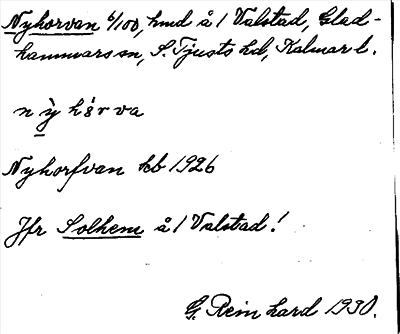 Nyhorvan 6/100, hmd å 1 Valstad, Glad-
hammars sn, S. Tjusts hd, Kalmar l.
n y̆̀ h å̀ r va
Nyhorfvan kb 1926
Jfr Solhem å 1 Valstad!
G. Reinhard 1930.